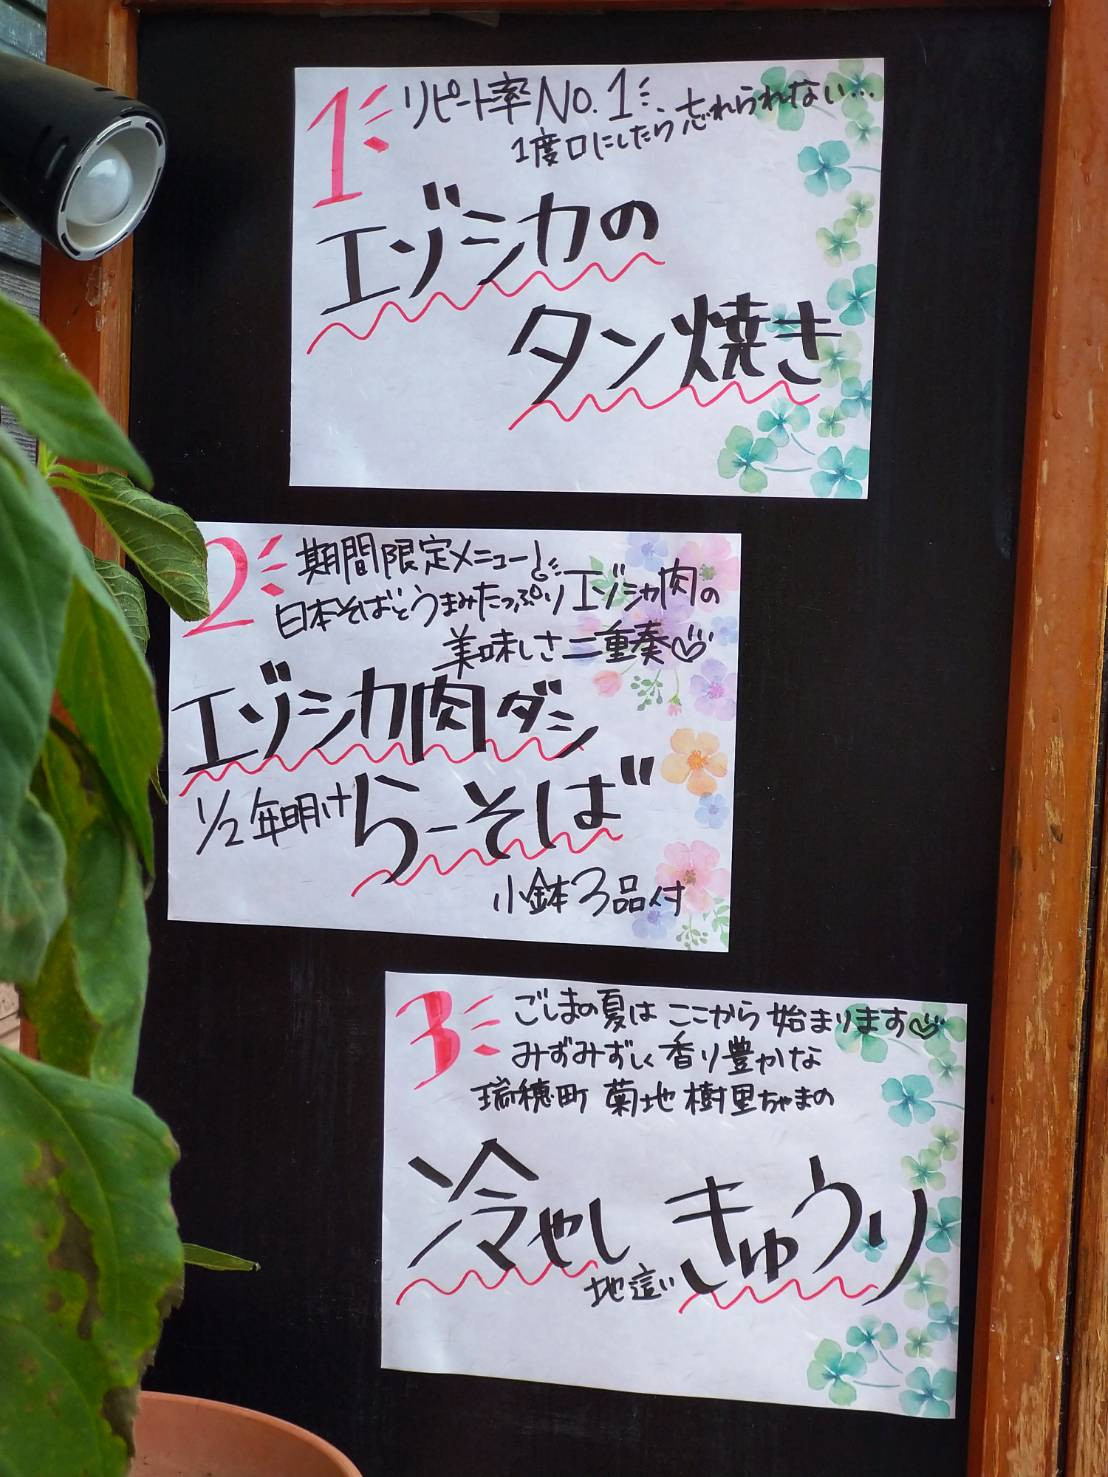 1
リピート率No.1
1度口にしたら忘れられない…
エゾシカの
タン焼き
2
期間限定メニュー!
日本そばとうまみたっぷりエゾシカ肉の
美味しさ二重奏
エゾシカ肉ダシ
1/2年明け らーそば
小鉢3品付
3
ごしまの夏はここから始まります
みずみずしく香り豊かな
瑞穂町 菊地樹里ちゃまの
冷やし
地這い きゅうり